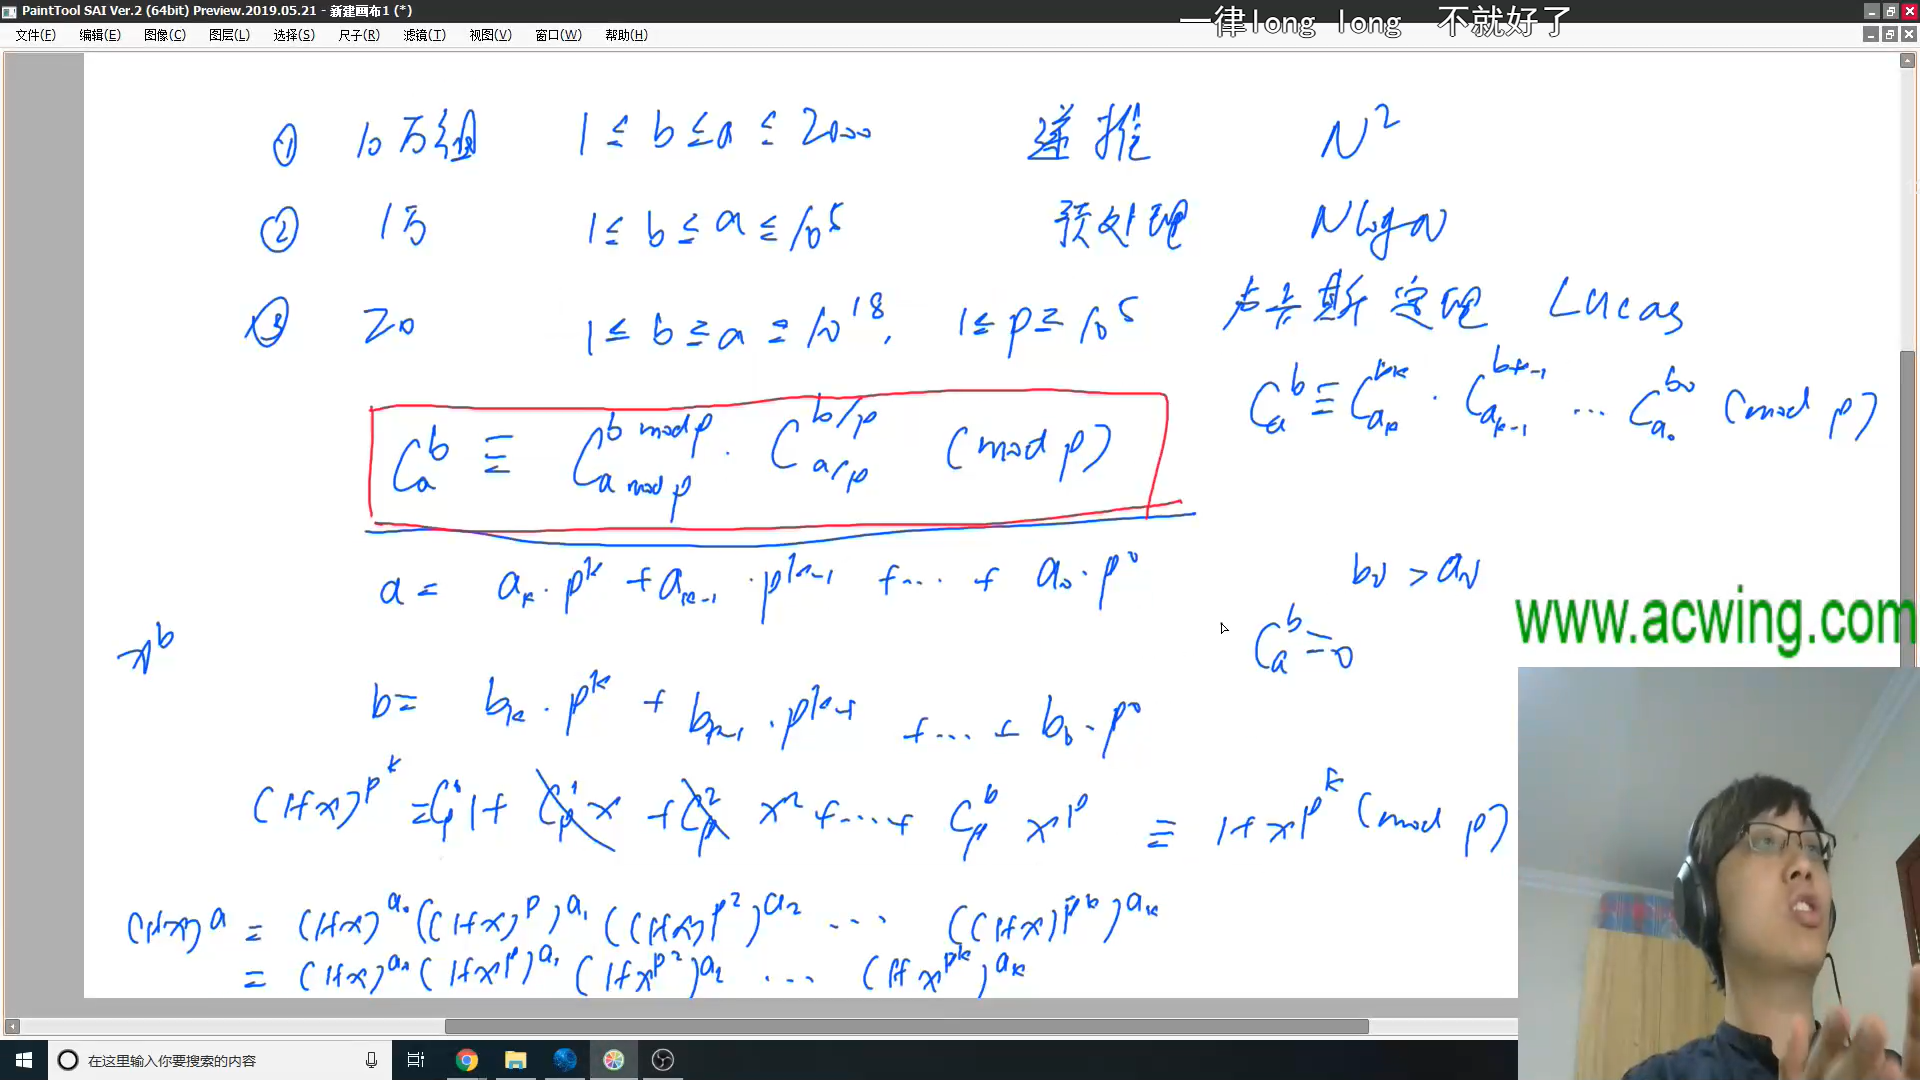 PaintTool SAI Ver.2 (64bit) Preview.2019.05.21 - 新建画布1 (*)
一律long long 不就好了
文件(F) 编辑(E) 图像(C) 图层(L) 选择(S) 尺子(R) 滤镜(T) 视图(V) 窗口(W) 帮助(H)
① 10万组 1 ≤ b ≤ a ≤ 2000 递推 N²
② 1万 1 ≤ b ≤ a ≤ 10⁵ 预处理 NlogN
③ 20 1 ≤ b ≤ a ≤ 10¹⁸, 1 ≤ p ≤ 10⁵ 卢卡斯定理 Lucas
C_a^b ≡ C_{a_k}^{b_k} · C_{a_{k-1}}^{b_{k-1}} ... C_{a_0}^{b_0} (mod p)
C_a^b ≡ C_{a mod p}^{b mod p} · C_{a/p}^{b/p} (mod p)
a = a_k · p^k + a_{k-1} · p^{k-1} + ... + a_0 · p^0
C_a^b = 0
www.acwing.com
x^b
b = b_k · p^k + b_{k-1} · p^{k-1} + ... + b_0 · p^0
≡ 1+x^{p^k} (mod p)
(1+x)^a = (1+x)^{a_0} ((1+x)^p)^{a_1} ((1+x)^{p^2})^{a_2} ... ((1+x)^{p^k})^{a_k}
= (1+x)^{a_0} (1+x^p)^{a_1} (1+x^{p^2})^{a_2} ... (1+x^{p^k})^{a_k}
在这里输入你要搜索的内容